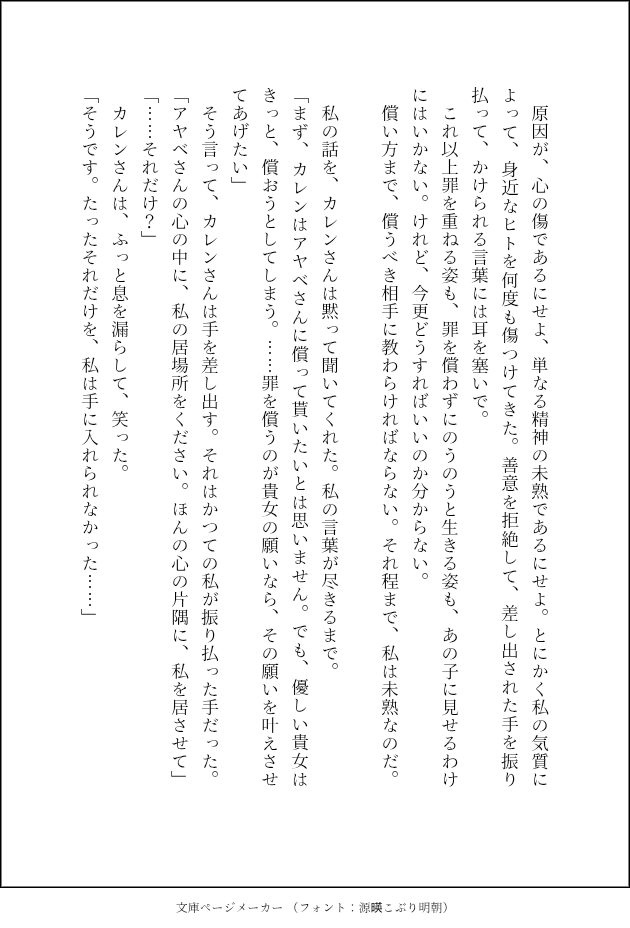 原因が、心の傷であるにせよ、単なる精神の未熟であるにせよ。とにかく私の気質に
よって、身近なヒトを何度も傷つけてきた。善意を拒絶して、差し出された手を振り
払って、かけられる言葉には耳を塞いで。
これ以上罪を重ねる姿も、罪を償わずにのうのうと生きる姿も、あの子に見せるわけ
にはいかない。けれど、今更どうすればいいのか分からない。
償い方まで、償うべき相手に教わらければならない。それ程まで、私は未熟なのだ。
私の話を、カレンさんは黙って聞いてくれた。私の言葉が尽きるまで。
「まず、カレンはアヤベさんに償って貰いたいとは思いません。でも、優しい貴女は
きっと、償おうとしてしまう。……罪を償うのが貴女の願いなら、その願いを叶えさせ
てあげたい」
そう言って、カレンさんは手を差し出す。それはかつての私が振り払った手だった。
「アヤベさんの心の中に、私の居場所をください。ほんの心の片隅に、私を居させて」
「……それだけ？」
カレンさんは、ふっと息を漏らして、笑った。
「そうです。たったそれだけを、私は手に入れられなかった……」
文庫ページメーカー（フォント：源暎こぶり明朝）